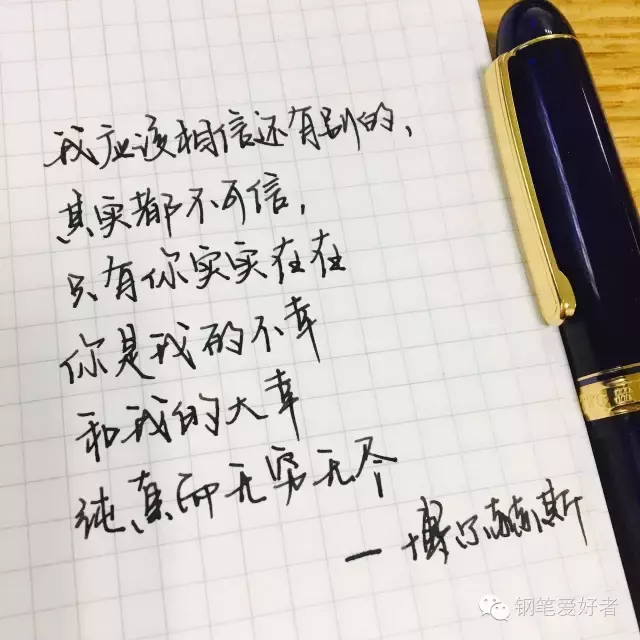 我应该相信还有别的，
其实都不可信，
只有你实实在在
你是我的不幸
和我的大幸
纯真而无穷无尽
一博尔赫斯
钢笔爱好者